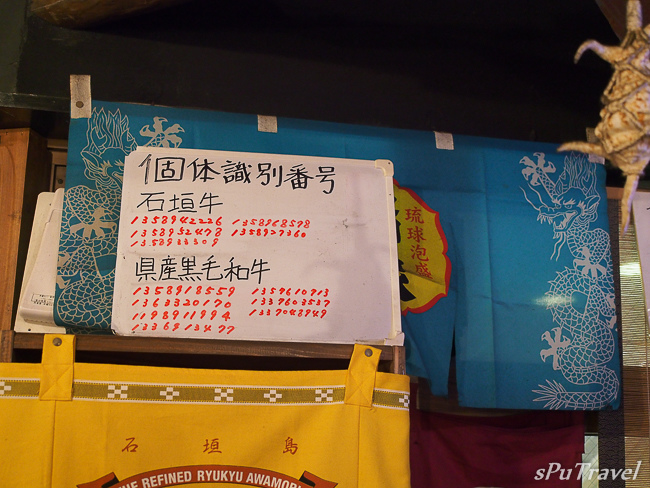 個体識別番号
石垣牛
1358942226 1358968578
1358952478 1358927360
1358933309
県産黒毛和牛
1358918559 1359610713
1363320170 1337603537
1198911994 1337048949
1336913477
琉球泡盛
石垣島
THE REFINED RYUKYU AWAMORI
sPuTravel